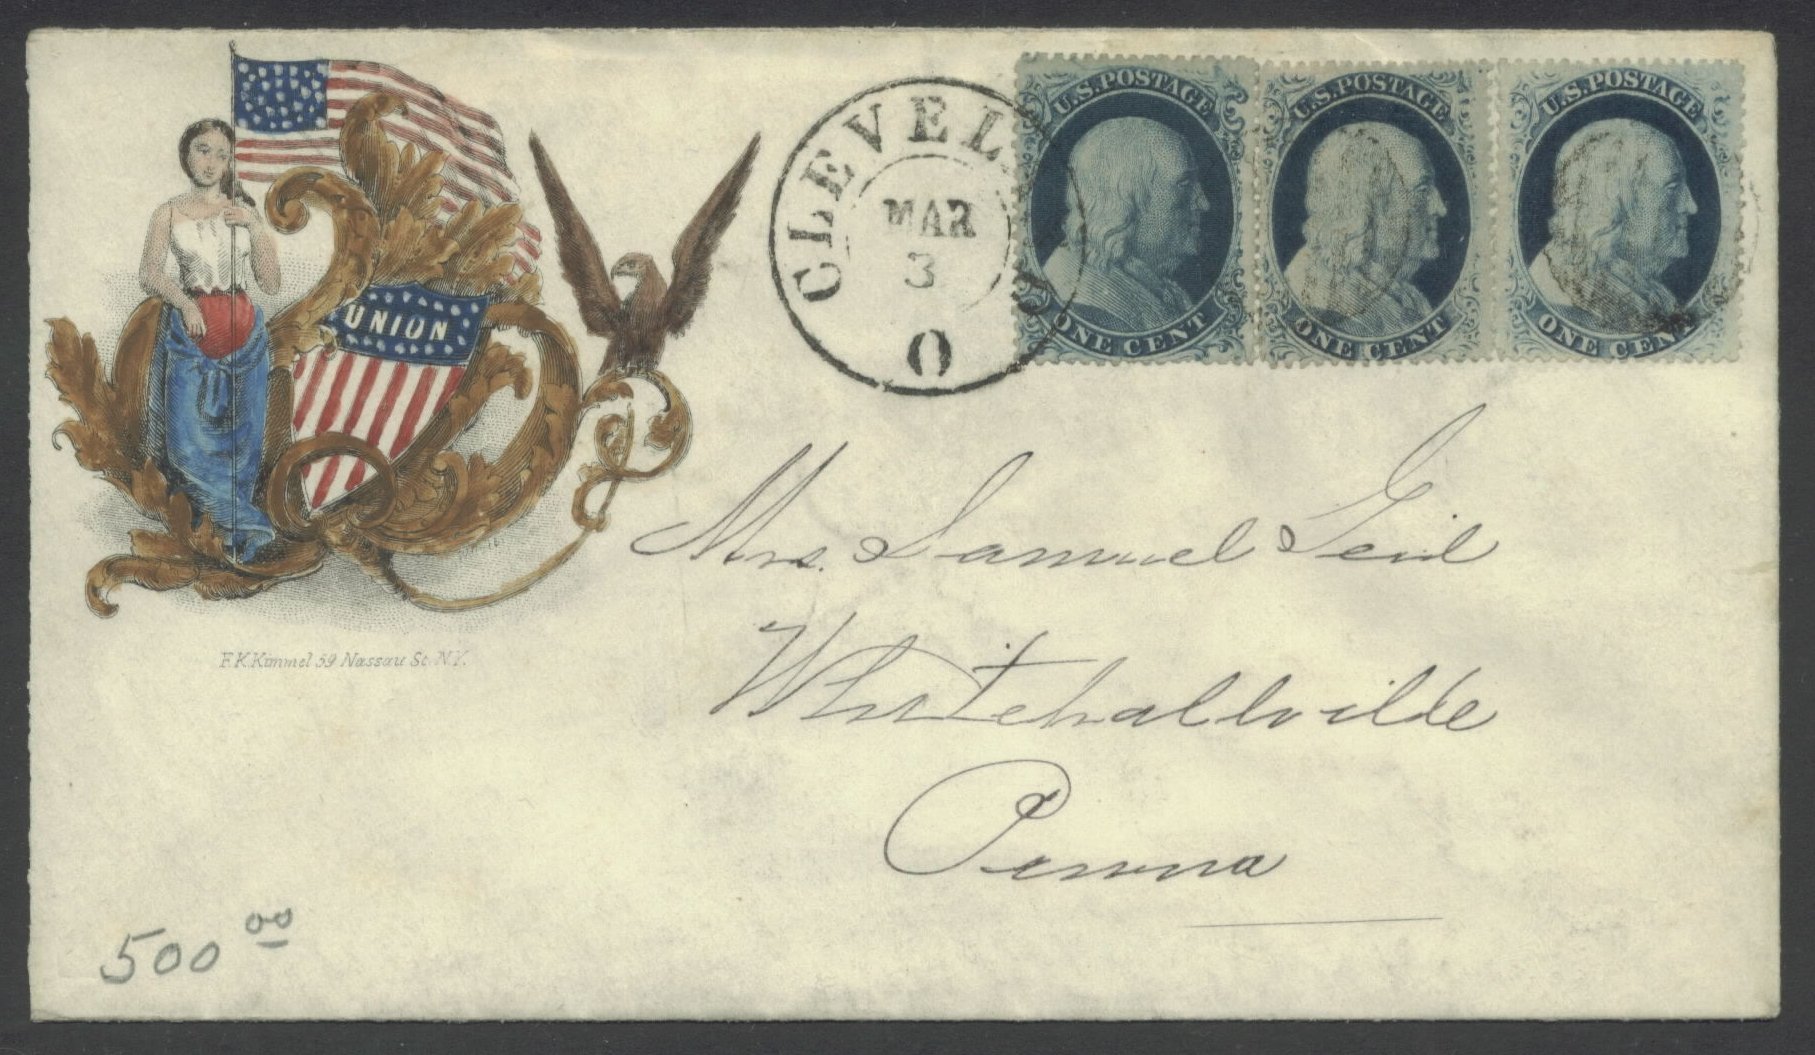 UNION
F.K.Kimmel 59 Nassau St. N.Y.
CLEVEL
MAR
3
O
U.S.POSTAGE
ONE CENT
U.S.POSTAGE
ONE CENT
U.S.POSTAGE
ONE CENT
Mrs. Samuel Geil
Whitehallville
Penna
500 00